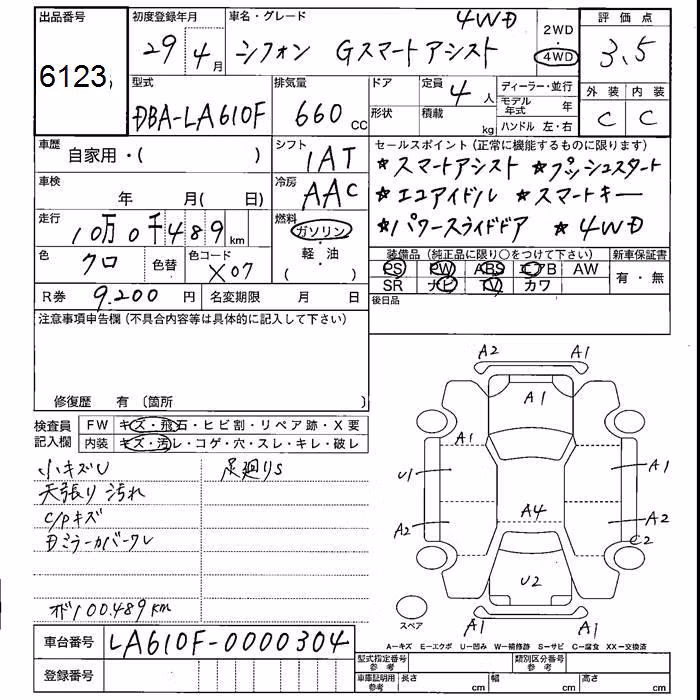 出品番号 初度登録年月 車名・グレード 4WD 2WD・4WD 評価点
6123 29年4月 シフォン Gスマートアシスト 3.5
型式 排気量 ドア 定員 4人 ディーラー・並行 外装 内装
DBA-LA610F 660cc 形状 積載 kg モデル年式 年 C C
ハンドル 左・右
車歴 自家用・( ) シフト 1AT セールスポイント(正常に機能するものに限ります)
★スマートアシスト ★プッシュスタート
車検 年 月( 日) 冷房 AAC ★エコアイドル ★スマートキー
走行 10万0千489km 燃料 ガソリン・軽・油( ) ★パワースライドドア ★4WD
色 クロ 色替 色コード X07 装備品(純正品に限り○をつけて下さい) 新車保証書
PS PW ABS エアB AW 有・無
SR ナビ TV カワ
R券 9,200円 名変期限 月 日 後日品
注意事項申告欄(不具合内容等は具体的に記入して下さい)
修復歴 有〔箇所 〕
検査員記入欄 FW キズ・飛石・ヒビ割・リペア跡・X要
内装 キズ・汚レ・コゲ・穴・スレ・キレ・破レ
小キズU 足廻りS
天張り汚れ
C/Pキズ
Dミラーカバーワレ
オド100.489km
A2 A1
A1
A1
U1 A1
A4
A2 A2
C2
U2
スペア A1 A1
A-キズ E-エクボ U-凹み W-補修跡 S-サビ C-腐食 XX-交換済
車台番号 LA610F-0000304
登録番号
型式指定番号 参考 類別区分番号 参考
車庫証明用 参考 長さ cm 幅 cm 高さ cm